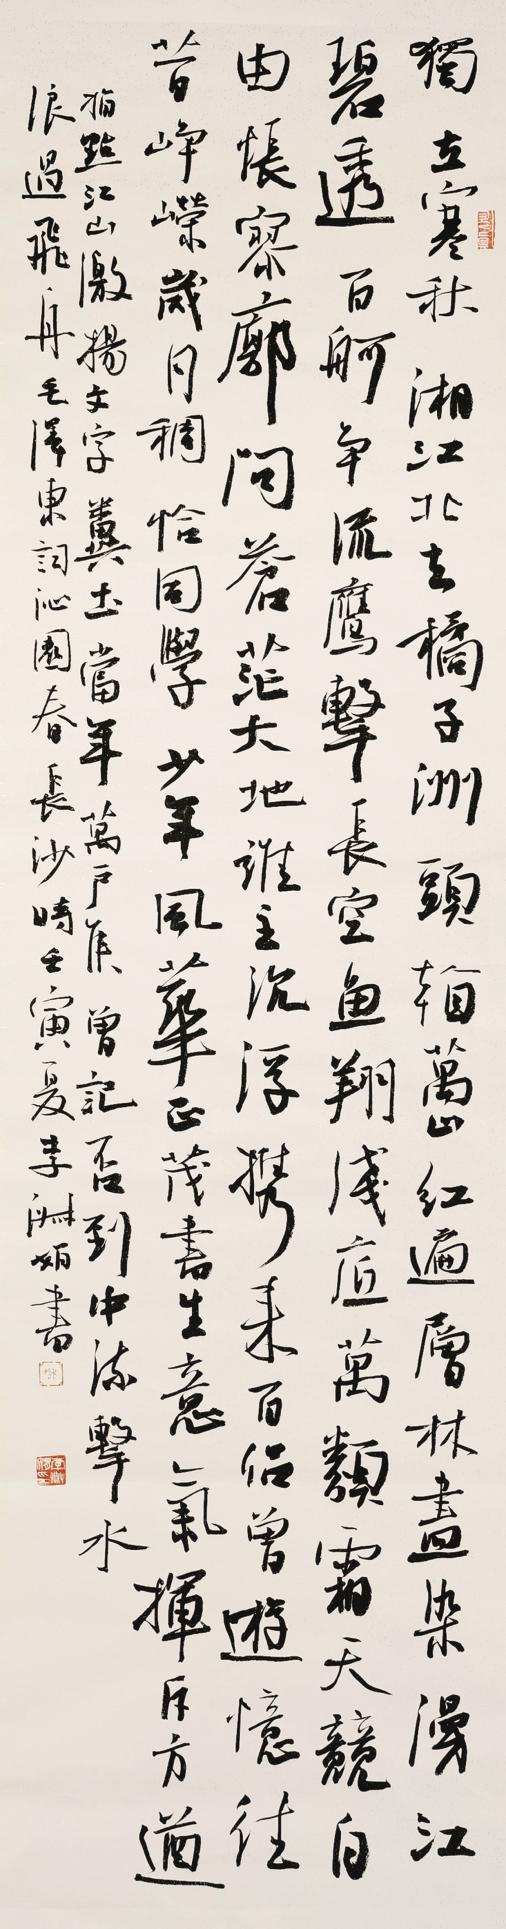 獨立寒秋湘江北去橘子洲頭看萬山紅遍層林盡染漫江
碧透百舸争流鹰擊長空魚翔淺底萬類霜天競自
由悵寥廓问蒼茫大地誰主沉浮携来百侣曾遊憶往
昔峥嶸歲月稠恰同學少年風華正茂書生意氣揮斥方遒
指點江山激揚文字糞土當年萬户侯曾記否到中流擊水
浪遏飛舟毛澤東詞沁園春長沙時壬寅夏李書